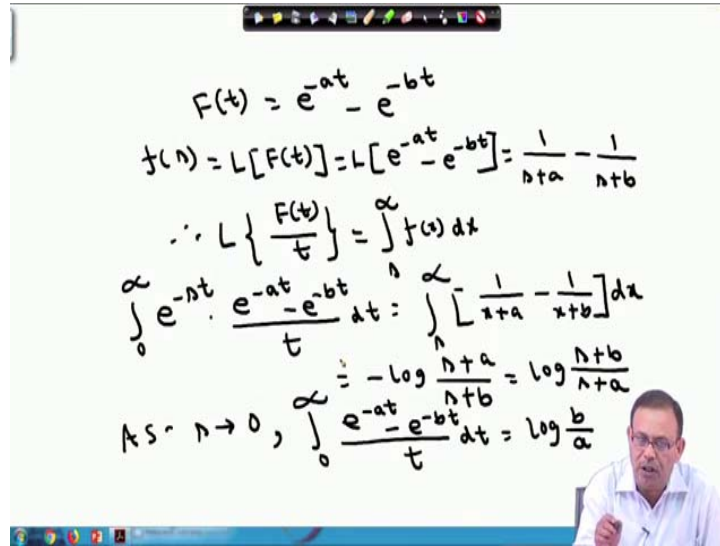 F(t) = e^{-at} - e^{-bt}
f(s) = L[F(t)] = L[e^{-at} - e^{-bt}] = \frac{1}{s+a} - \frac{1}{s+b}
∴ L{\frac{F(t)}{t}} = ∫_s^∞ f(x) dx
∫_0^∞ e^{-st} · \frac{e^{-at} - e^{-bt}}{t} dt = ∫_s^∞ [\frac{1}{x+a} - \frac{1}{x+b}] dx
= -log \frac{s+a}{s+b} = log \frac{s+b}{s+a}
As s → 0, ∫_0^∞ \frac{e^{-at} - e^{-bt}}{t} dt = log \frac{b}{a}